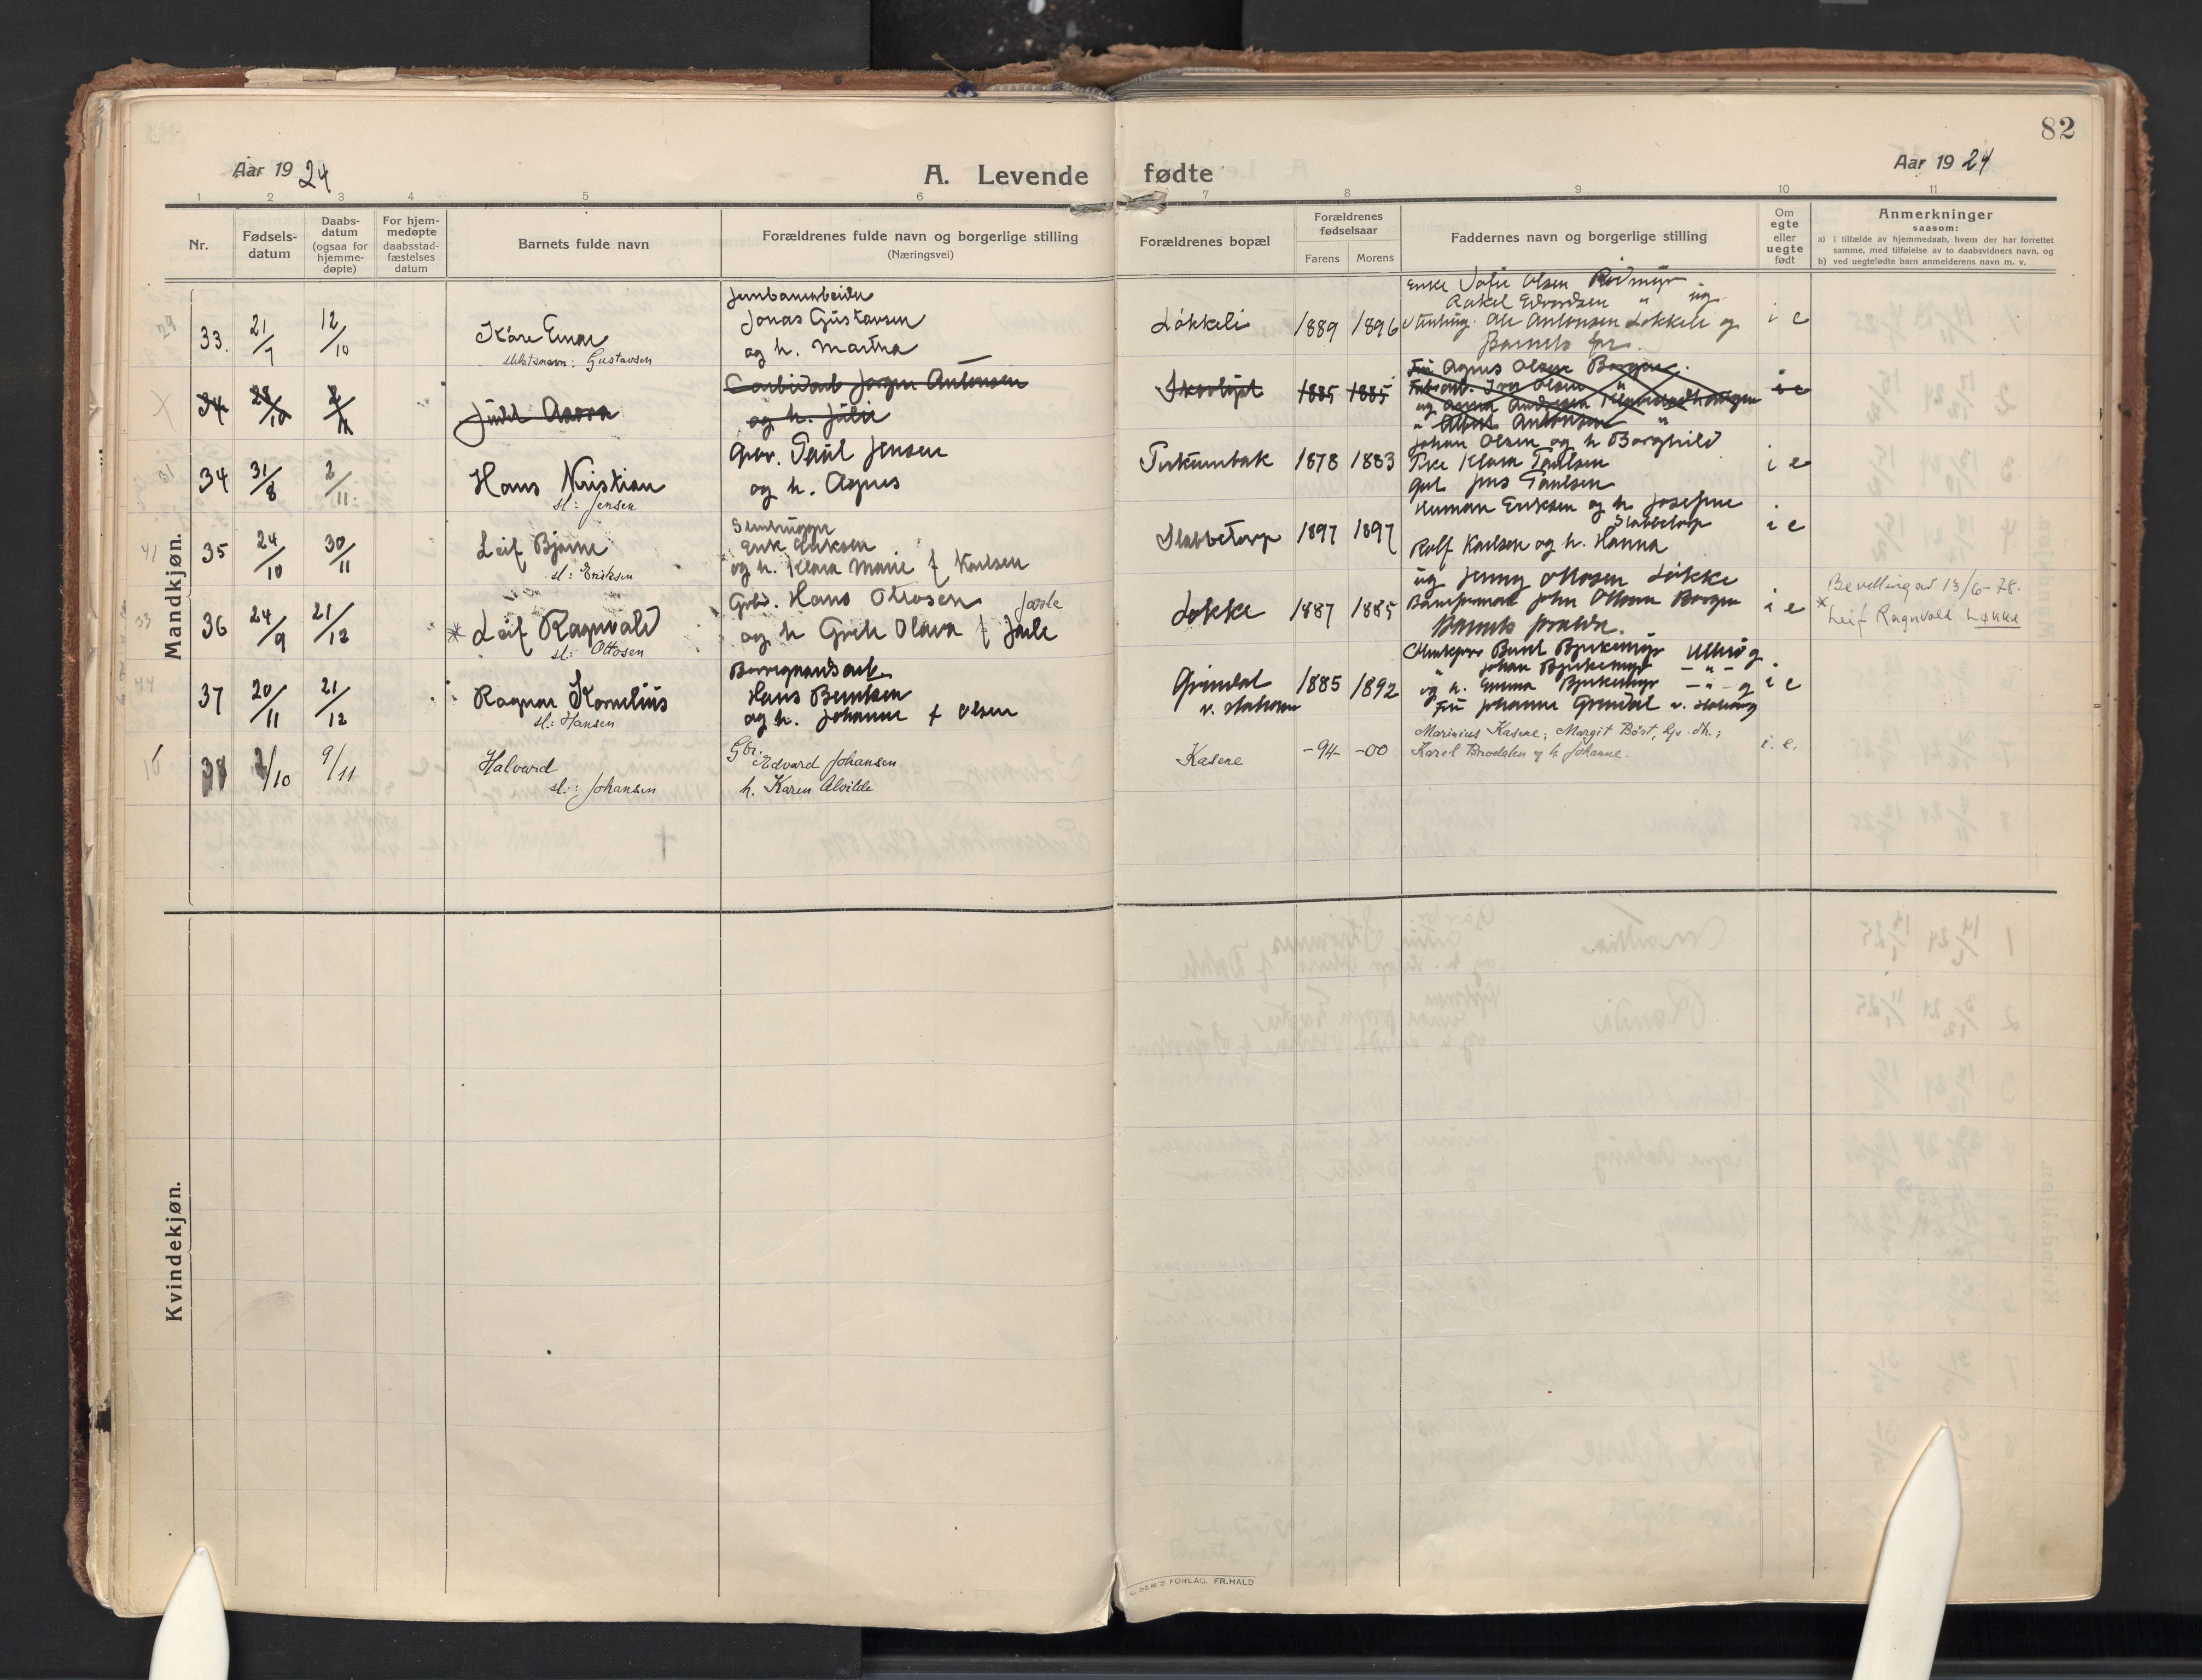 82
Aar 1924
A. Levende fødte
Aar 1924
1 2 3 4 5 6 7 8 9 10 11
Nr.
Fødsels-
datum
Daabs-
datum
(ogsaa for
hjemme-
døpte)
For hjem-
medøpte
daabsstad-
fæstelses
datum
Barnets fulde navn
Forældrenes fulde navn og borgerlige stilling
(Næringsvei)
Forældrenes bopæl
Forældrenes
fødselsaar
Farens Morens
Faddernes navn og borgerlige stilling
Om
egte
eller
uegte
født
Anmerkninger
saasom:
a) i tilfælde av hjemmedaab, hvem der har forrettet
samme, med tilføielse av to daabsvidners navn, og
b) ved uegtefødte barn anmelderens navn m. v.
Mandkjøn.
33. 21/7 12/10
Kåre Einar
slektsnavn: Gustavsen
Jernbanearbeider
Jonas Gustavsen
og h. Martha
Løkkeli 1889 1896
Enke Sofie Olsen Rødmyr
Rakel Edvardsen " og
Ole Antonsen Løkkeli og
Barnets far.
i e
34 28/10 2/11
Judit Aasora
Jørgen Antonsen
og h. Julie
1885 1885
Fru Agnes Olsen Borgen.
Iver Olsen "
og Anna Andersen
" Antonsen "
i e
34 31/8 2/11
Hans Kristian
sl: Jensen
Gbr. Paul Jensen
og h. Agnes
1878 1883
Johan Olsen og h Borghild
Pike Klara Paulsen
gut Jens Paulsen
i e
41
35 24/10 30/11
Leif Bjarne
sl: Eriksen
Stenhugger
Erik Eriksen
og h. Klara Marie f Karlsen
Slabbetorp 1897 1897
Herman Eriksen og h Josefine
Slabbetorp
Rolf Karlsen og h. Hanna
i e
33
36 24/9 21/12
* Leif Ragnvald
sl: Ottosen
Gbr. Hans Ottosen
og h Grete Olava f Jarle
Løkke 1887 1885
ug Jenny Ottosen Løkke
John Ottosen Borgen
Barnets forældre.
i e
Bevilling av 13/6-78.
* Leif Ragnvald Løkke
44
37 20/11 21/12
Ragnar Kornelius
sl: Hansen
Borregaardsarb.
Hans Berntsen
og h. Johanne f Olsen
Grindal 1885 1892
Bernt Bjerkemyr Ullerø g
" Johan Bjerkemyr - " -
og h. Emma Bjerkemyr - " - g
Fru Johanne Grindal
i e
38 2/10 9/11
Halvard
sl.: Johansen
Gbr.
Edvard Johansen
h. Karen Alvilde
Kasene -94- -00
Marinius Kasene; Margit Bøst,
Karel Brodalen og h. Johanne.
i. e.
Kvindekjøn.
FORLAG. FR.HALD